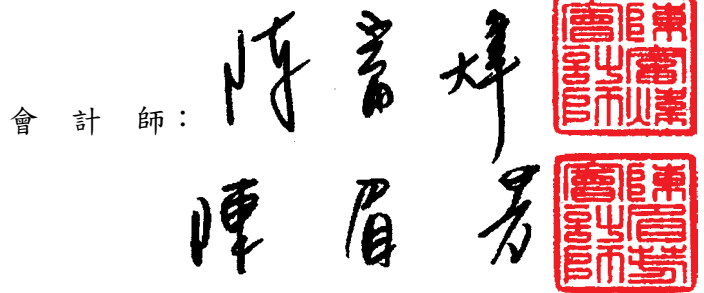 會計師：陳富煒
陳富煒會計師
陳眉芳
陳眉芳會計師